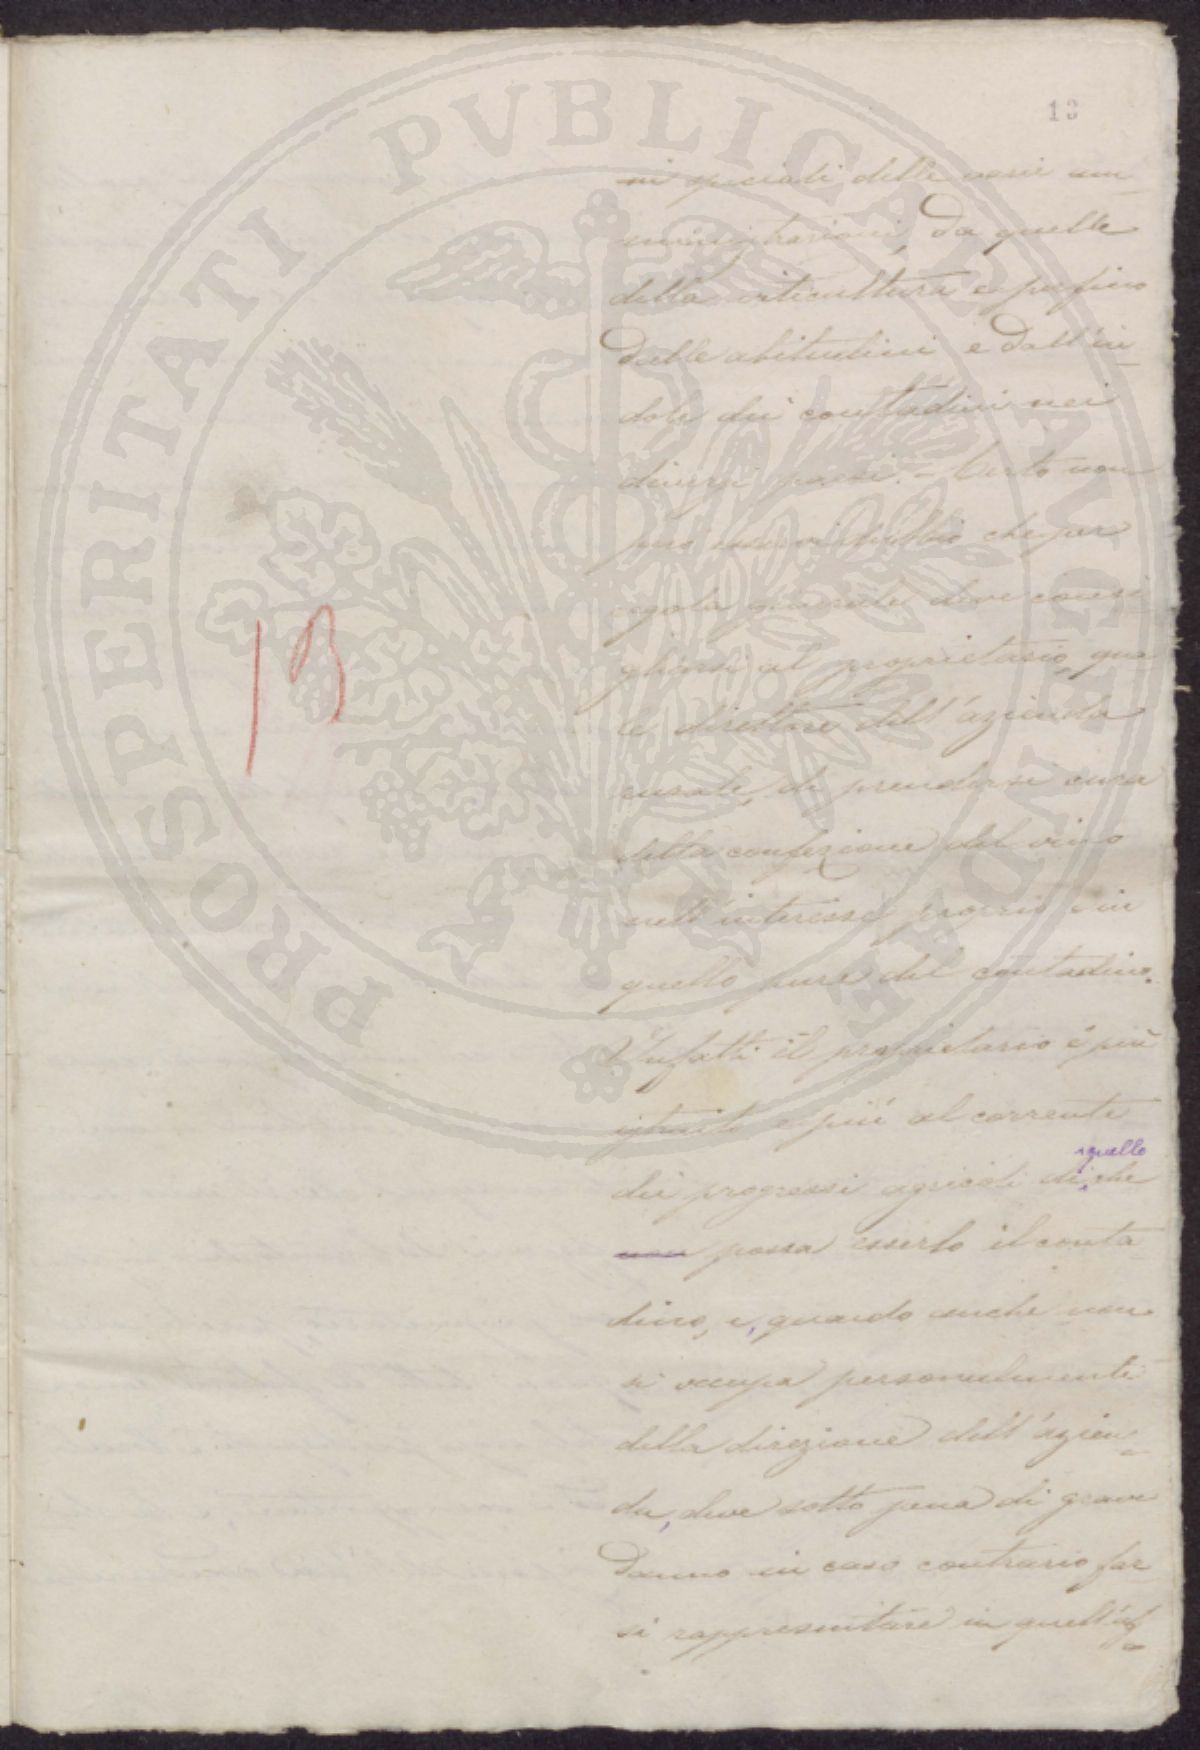 13
PROSPERITATI PVBLICAE AVGENDAE
13
ni speciali delle varie am-
ministrazioni, da quelle
della viticultura e perfino
dalle abitudini e dall'in-
dole dei contadini nei
diversi paesi. - Certo non
può esservi dubbio che per
regola generale deve consi
gliarsi al proprietario, qua
le direttore dell'azienda
rurale, di prendersi cura
della confezione del vino
nell'interesse proprio e in
quello pure del contadino.
Infatti il proprietario è più
istruito e più al corrente
quello
dei progressi agricoli di che
non possa esserlo il conta
dino, e, quando anche non
si occupa personalmente
della direzione dell'azien-
da, deve sotto pena di grave
danno in caso contrario far
si rappresentare in quell'uf-